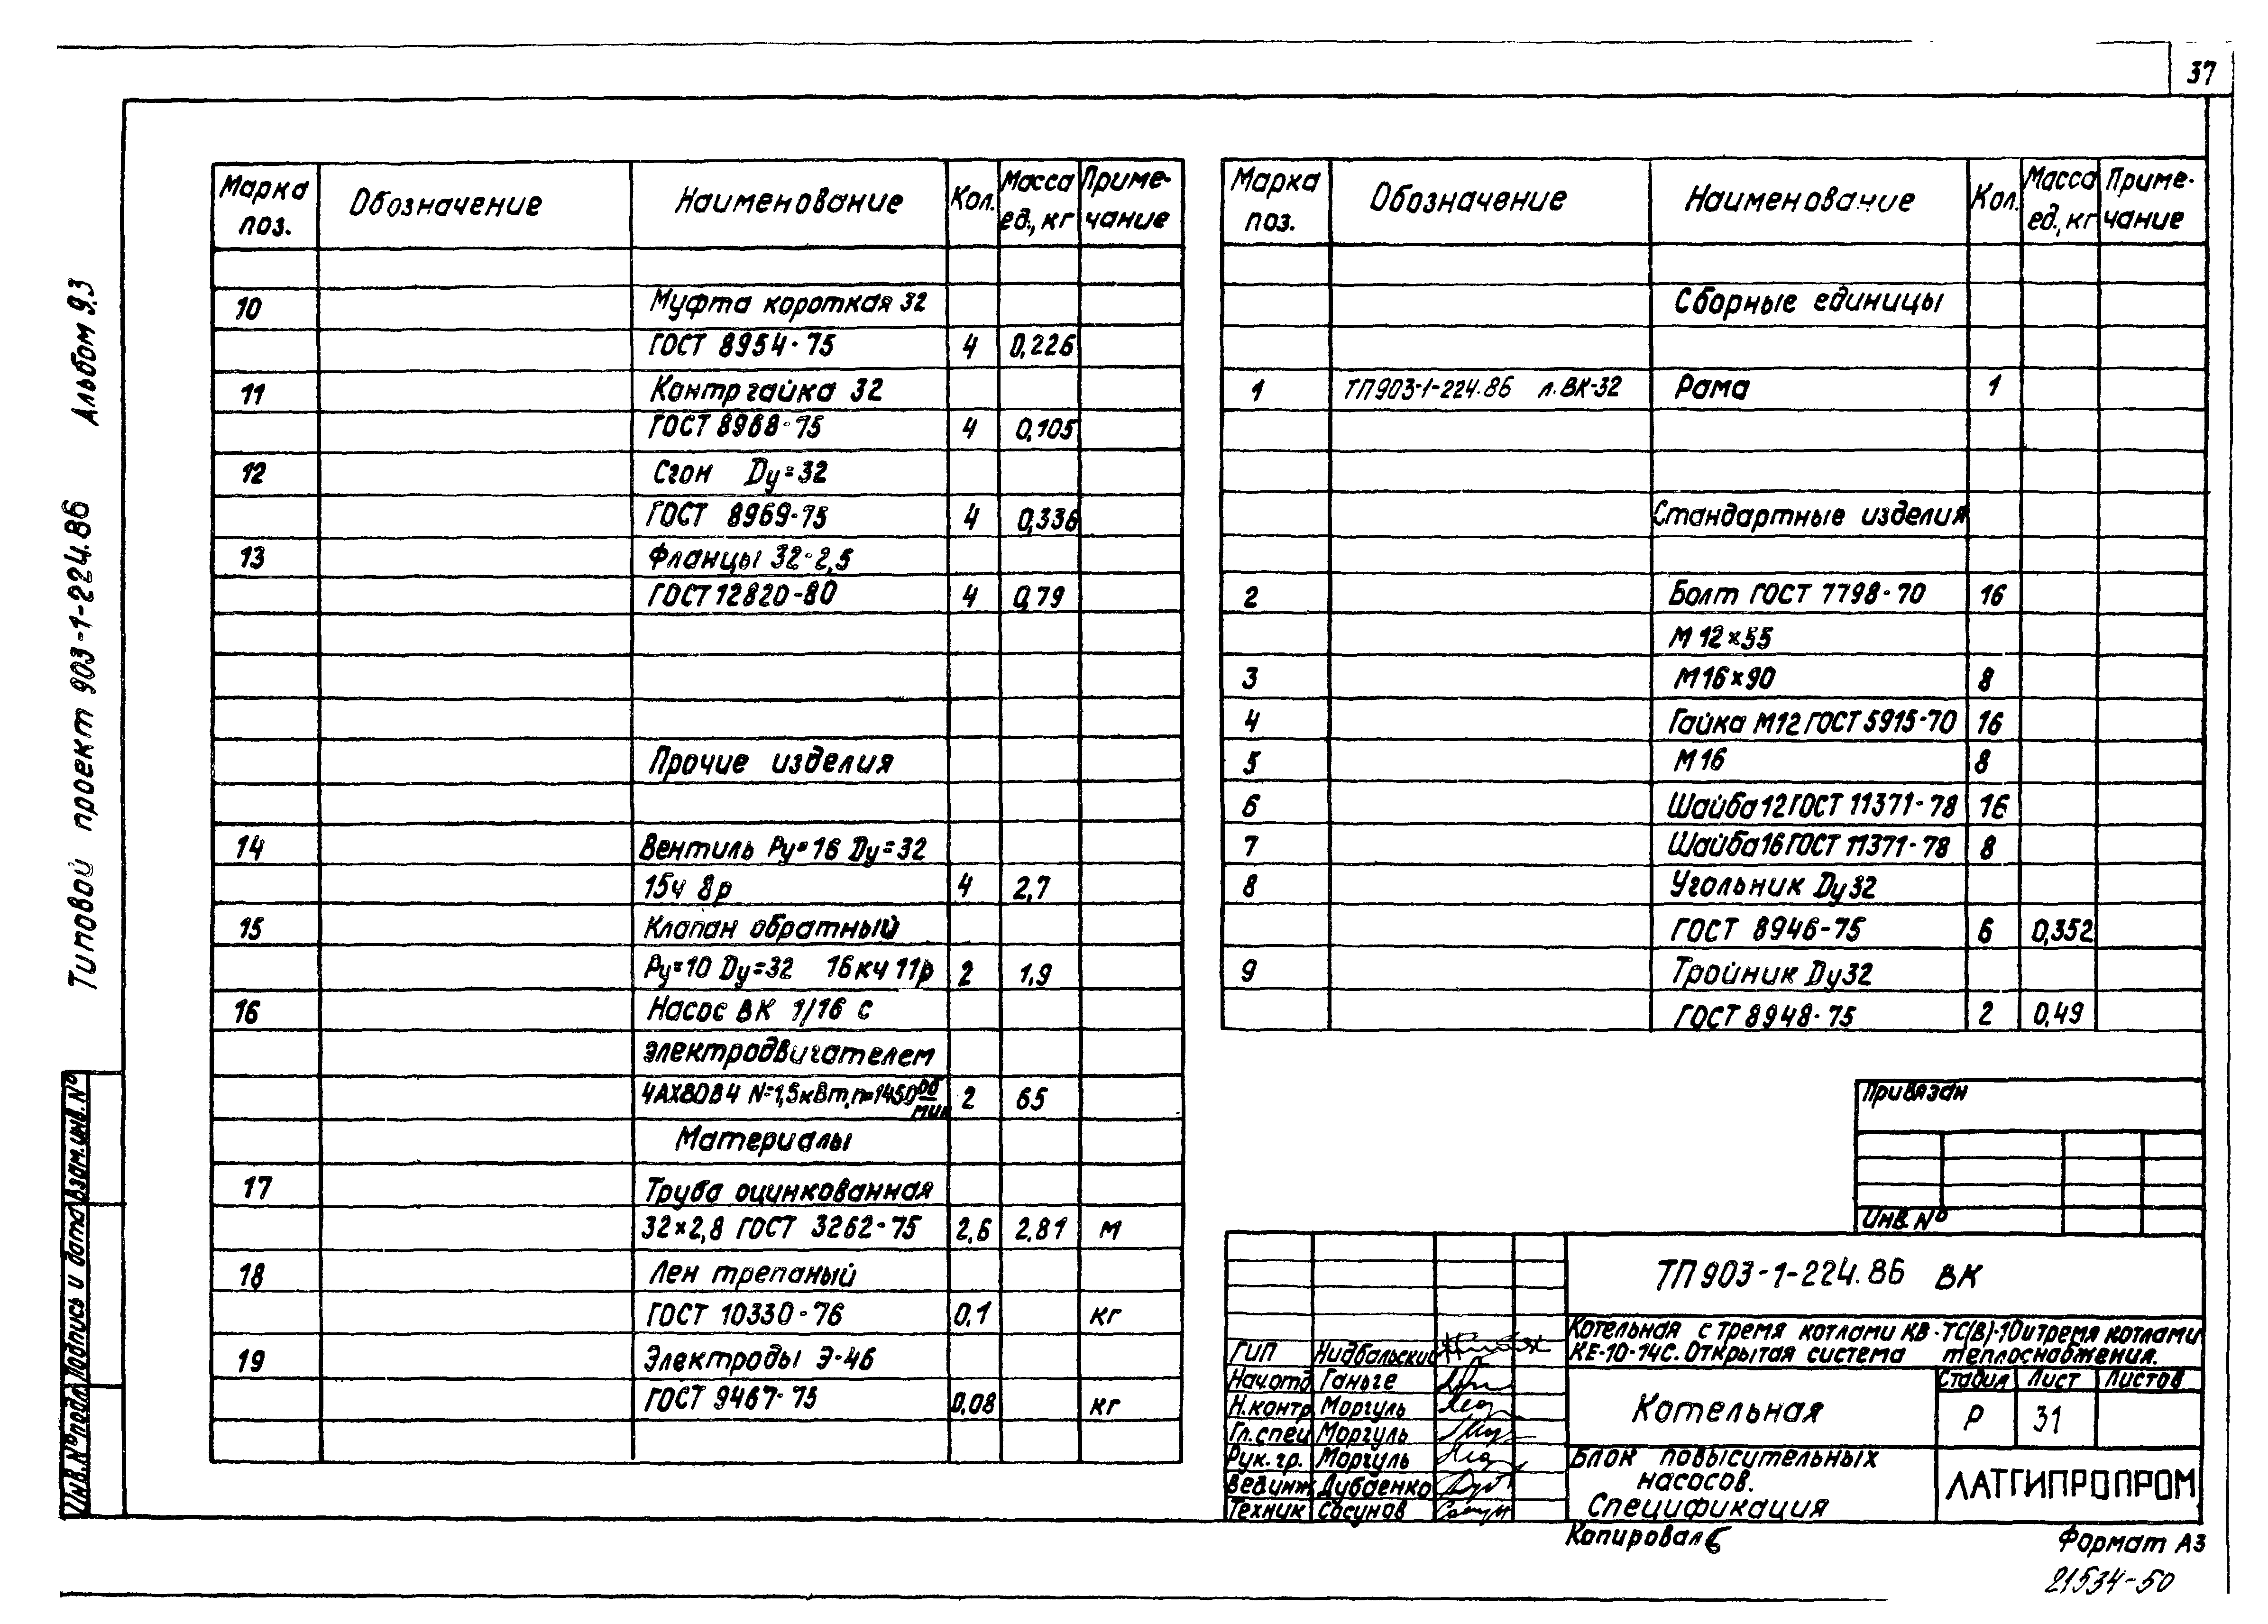 37
Типовой проект 903-1-224.86 Альбом 9.3
Марка поз. Обозначение Наименование Кол. Масса ед., кг Примечание
10 Муфта короткая 32
ГОСТ 8954-75 4 0,226
11 Контргайка 32
ГОСТ 8968-75 4 0,105
12 Сгон Dу=32
ГОСТ 8969-75 4 0,336
13 Фланцы 32-2,5
ГОСТ 12820-80 4 0,79
Прочие изделия
14 Вентиль Ру=16 Dу=32
15ч 8р 4 2,7
15 Клапан обратный
Ру=10 Dу=32 16кч 11р 2 1,9
16 Насос ВК 1/16 с
электродвигателем
4АХ80В4 N=1,5кВт, n=1450 об/мин 2 65
Материалы
17 Труба оцинкованная
32×2,8 ГОСТ 3262-75 2,6 2,81 м
18 Лен трепаный
ГОСТ 10330-76 0,1 кг
19 Электроды Э-46
ГОСТ 9467-75 0,08 кг
Марка поз. Обозначение Наименование Кол. Масса ед., кг Примечание
Сборные единицы
1 ТП903-1-224.86 л. ВК-32 Рама 1
Стандартные изделия
2 Болт ГОСТ 7798-70 16
М12×55
3 М16×90 8
4 Гайка М12 ГОСТ 5915-70 16
5 М16 8
6 Шайба 12 ГОСТ 11371-78 16
7 Шайба 16 ГОСТ 11371-78 8
8 Угольник Dу32
ГОСТ 8946-75 6 0,352
9 Тройник Dу32
ГОСТ 8948-75 2 0,49
Привязан
Инв. №
ТП 903-1-224.86 ВК
Котельная с тремя котлами КВ-ТС(В)-10 и тремя котлами
КЕ-10-14С. Открытая система теплоснабжения.
ГИП Нидбальский
Нач отд Ганьге
Н.контр Моргуль
Гл.спец Моргуль
Рук. гр. Моргуль
Вед инж Дубаенко
Техник Сосунов
Котельная
Стадия Лист Листов
Р 31
Блок повысительных
насосов.
Спецификация
ЛАТГИПРОПРОМ
Копировал
Формат А3
21534-50
Инв. № подл. Подпись и дата Взам. инв. №